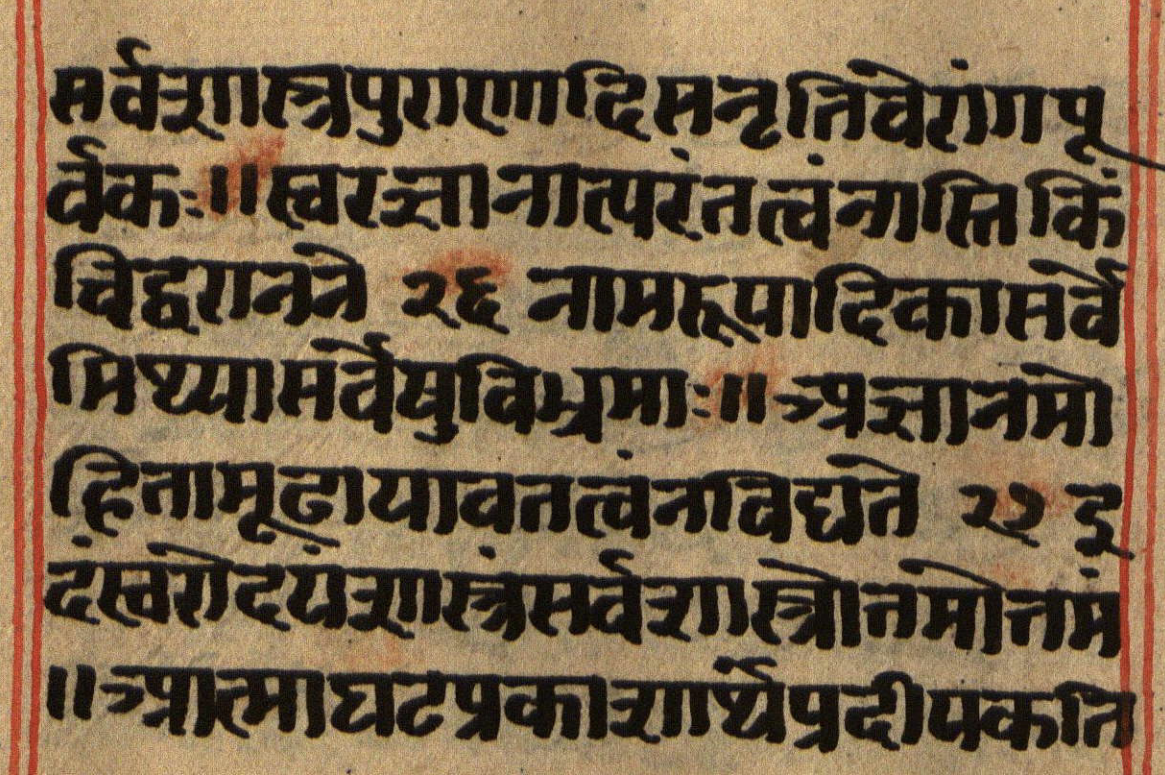 सर्वशास्त्रपुराणादिसमृतिवेदांगपू
र्वकः॥स्वरज्ञानात्परंतत्वंनास्तिकिं
चिद्वरानने २६ नामरूपादिकासर्वे
मिथ्यासर्वेषुविभ्रमाः॥अज्ञानमो
हितामूढायावतत्वंनविद्यते २७ इ
दंस्वरोदयंशास्त्रंसर्वशास्त्रोतमोत्तमं
॥आत्माघटप्रकाशार्थेप्रदीपकति